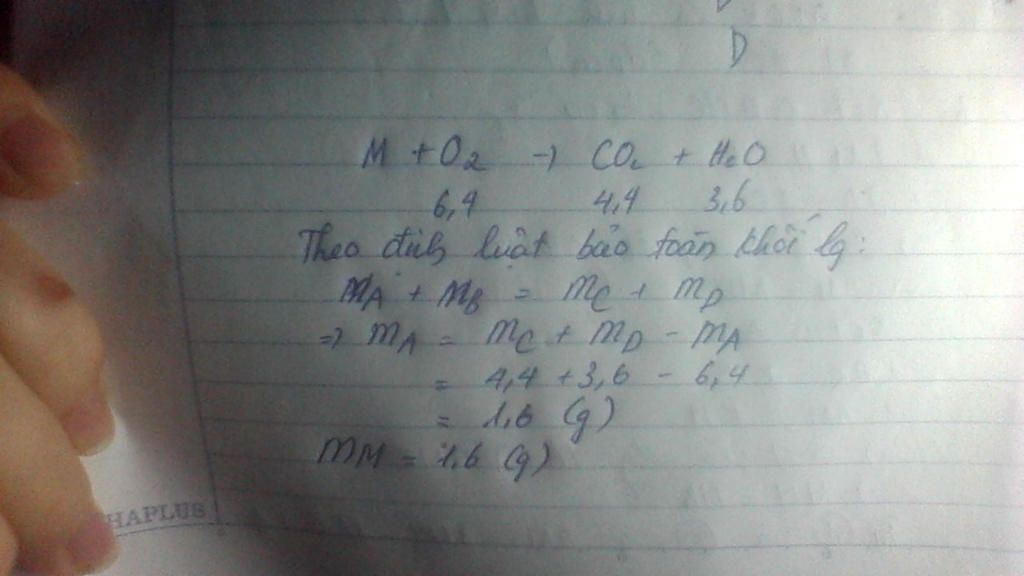 D
M + O2 → CO2 + H2O
6,4 4,4 3,6
Theo định luật bảo toàn khối lg:
mA + mB = mC + mD
=> mA = mC + mD - mA
= 4,4 + 3,6 - 6,4
= 1,6 (g)
mM = 1,6 (g)
HAPLUS